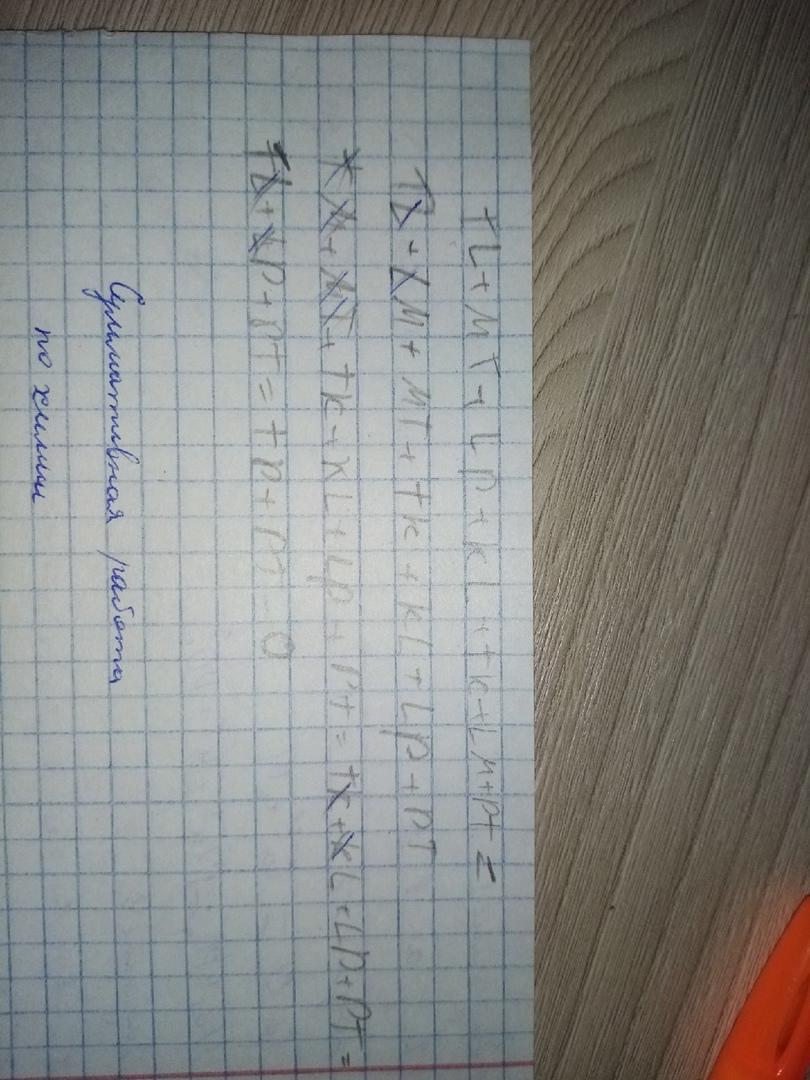 TL + MT + LP + KL + TK + LM + PT =
TL + LM + MT + TK + KL + LP + PT
TM + MT + TK + KL + LP + PT = TK + KL + LP + PT =
TL + LP + PT = TP + PT = 0
Суммативная работа
по химии